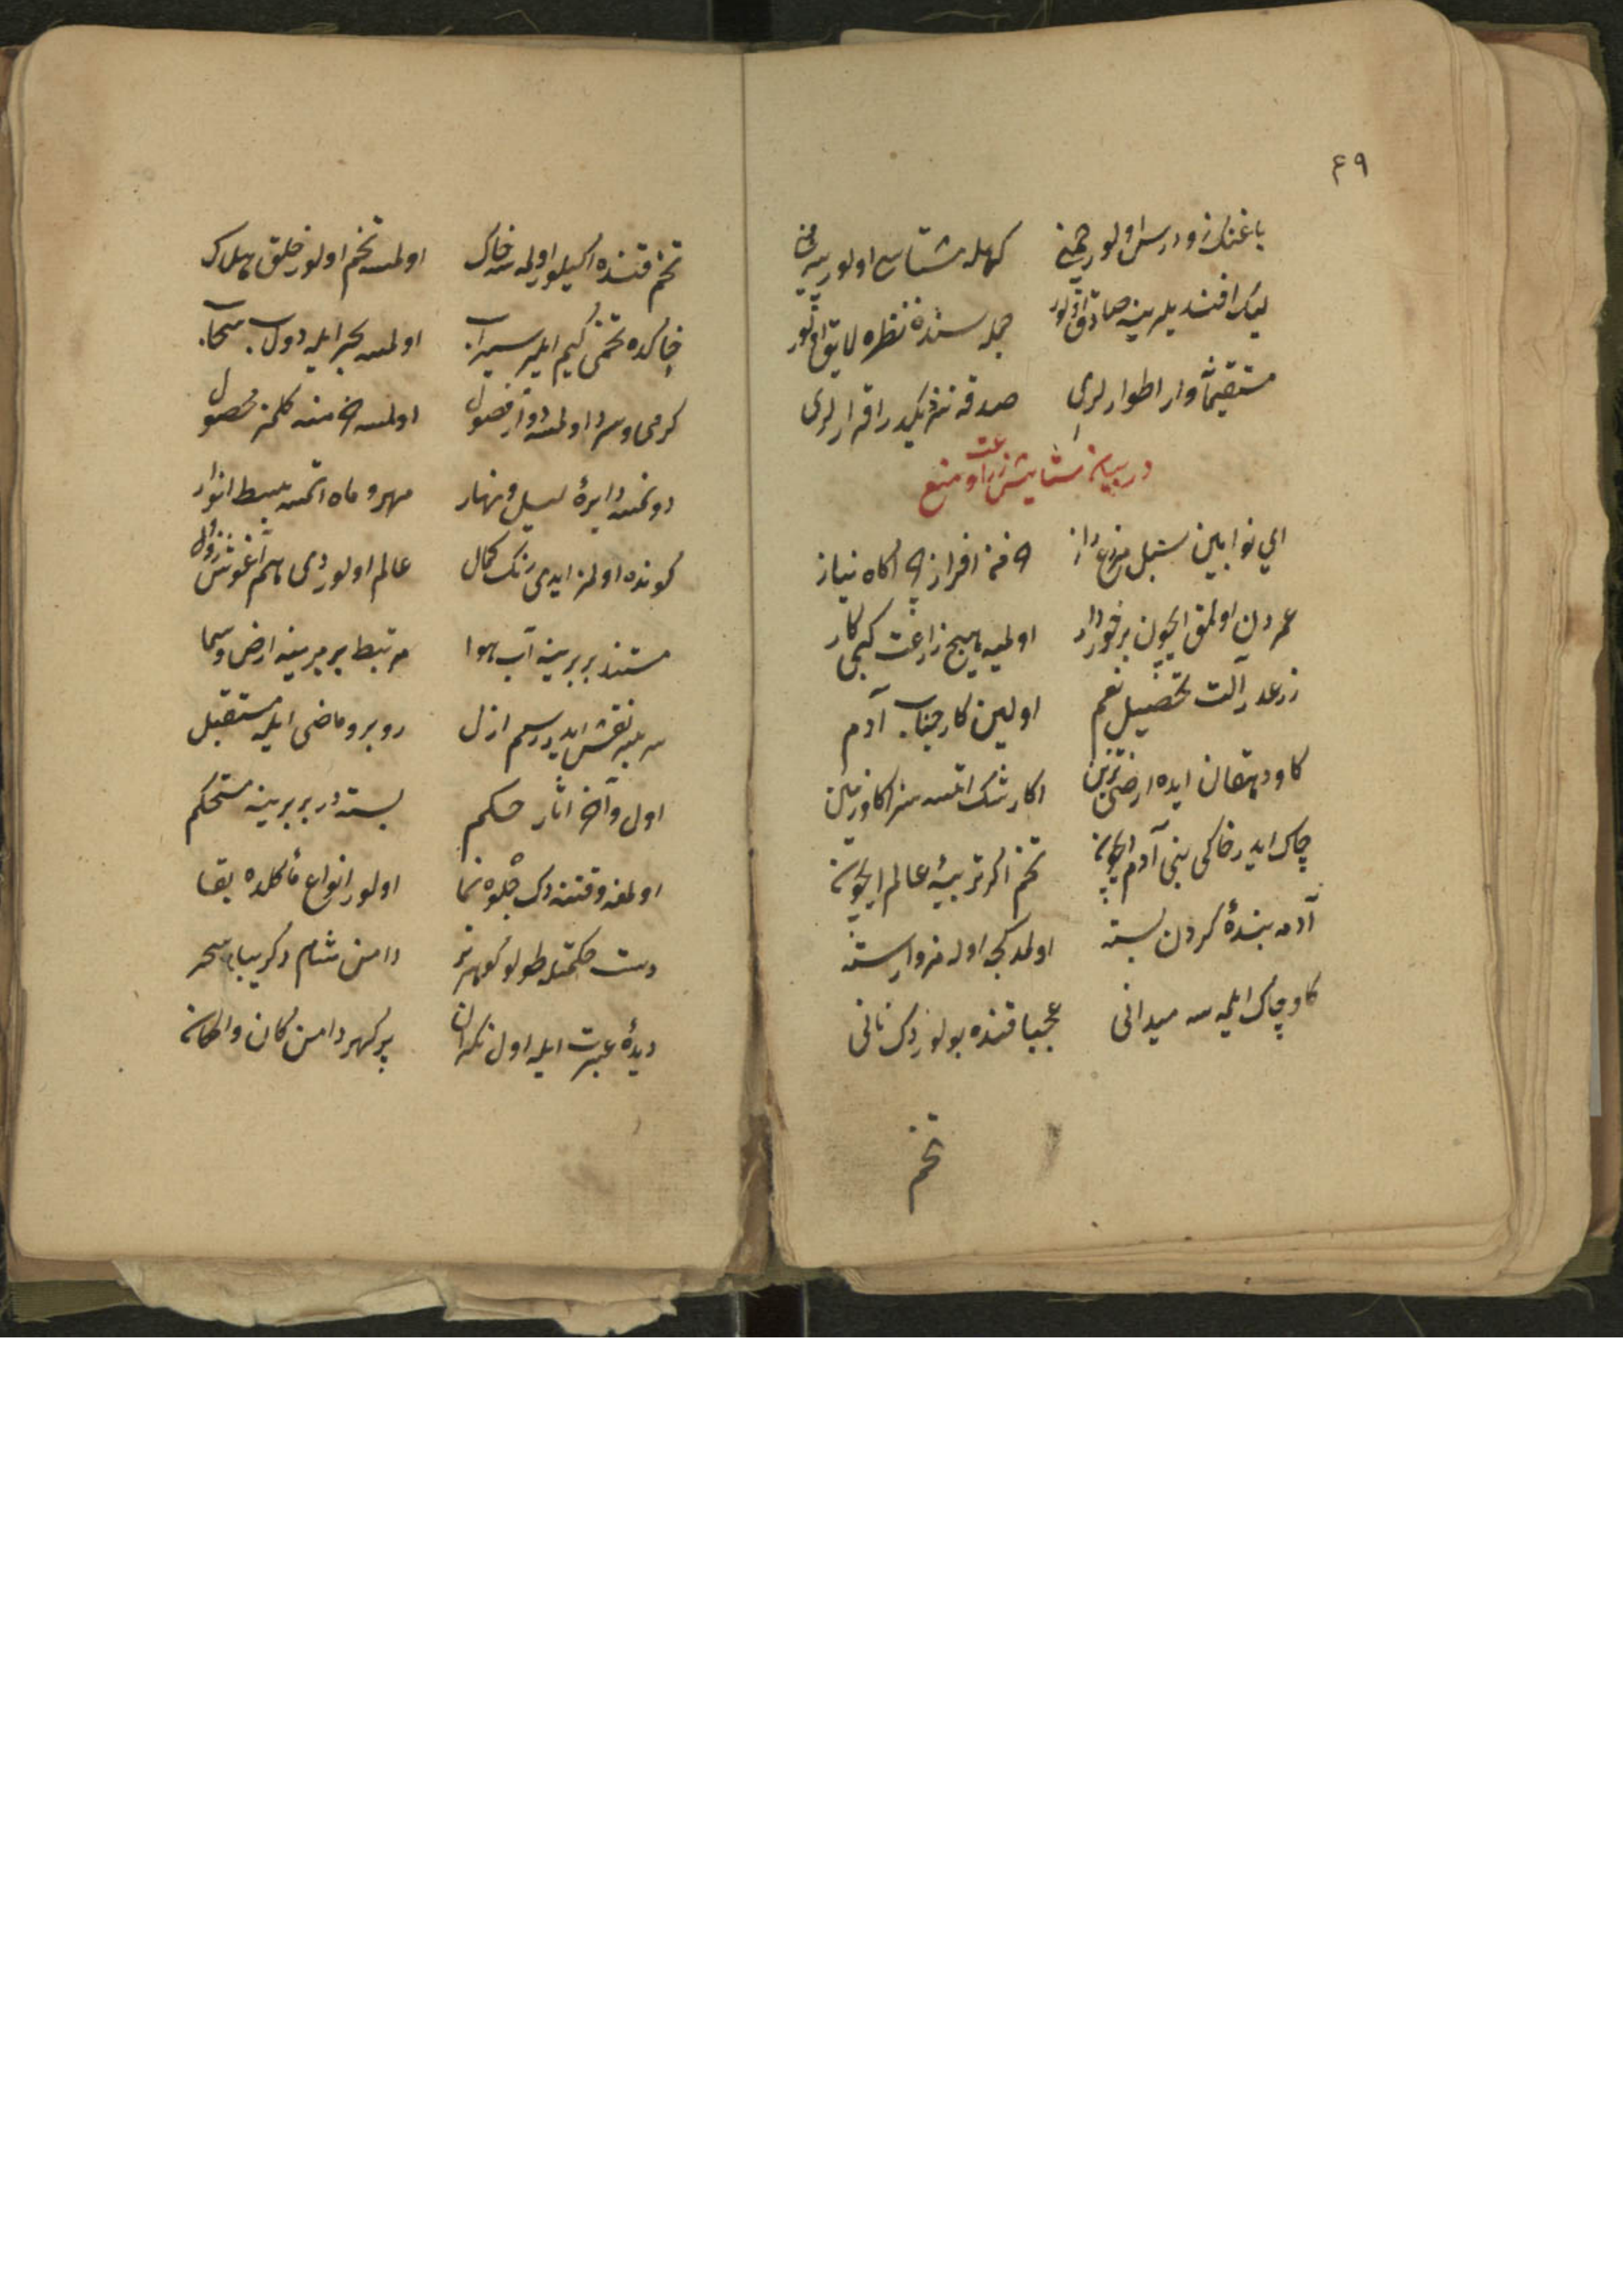 ۴۹
باغنك زودرس اولور چمنی كهله مشتاسی اولور
ليك افنديلرينه صادق اولور جمله سنده نظره لايق اولور
مستقيمانه وار اطوارلری صدقه نزديكدر اقرارلری
در بيان ستايش زراعت و منع
ای نوا بين سنبل مزرع راز خرمن افراز نياز
عمردن اولمق ايچون برخوردار اولميه هيچ زراعت كبی كار
زرعدر آلت تحصيل نعم اولين كار جناب آدم
كاو دهقان ايده ارضی تزيين اكا رشك اتسه سزا كاو زمين
چاك ايدر خاكی بنی آدم ايچون تخم اكر تربيهٔ عالم ايچون
آدمه بندهٔ كردن بسته اولمدقجه اوله مز وارسته
كاو چاك ايلمسه ميدانی عجبا قنده بولوردك نانی
تخم
تخم قنده اكيلور اولمسه خاك اولمسه تخم اولور خلق هلاك
خاكده تخمی كيم ايلر سيراب اولمسه بحر ايله دولاب سحاب
كرمی و سرد اولمسه دوار فصول اولمسه خرمنه كلمز محصول
دونمسه دايرهٔ ليل و نهار مهر و ماه اتمسه بسط انوار
كونده اولمز ايدی رنك كمال عالم اولوردی هم آغوش زوال
مستند بربرينه آب هوا مرتبط بربرينه ارض و سما
سر بسر نقش ايدر رسم ازل روبرو ماضی ايله مستقبل
اول و آخر اثار حكم بسته در بربرينه مستحكم
اولمغه وقتنه دك جلوه نما اولور انواع مأكلده بقا
دست حكمتله طولو كوهرتر دامن شام و كريبان سحر
ديدهٔ عبرت ايله اول نكران پر كهر دامن كان و امكان